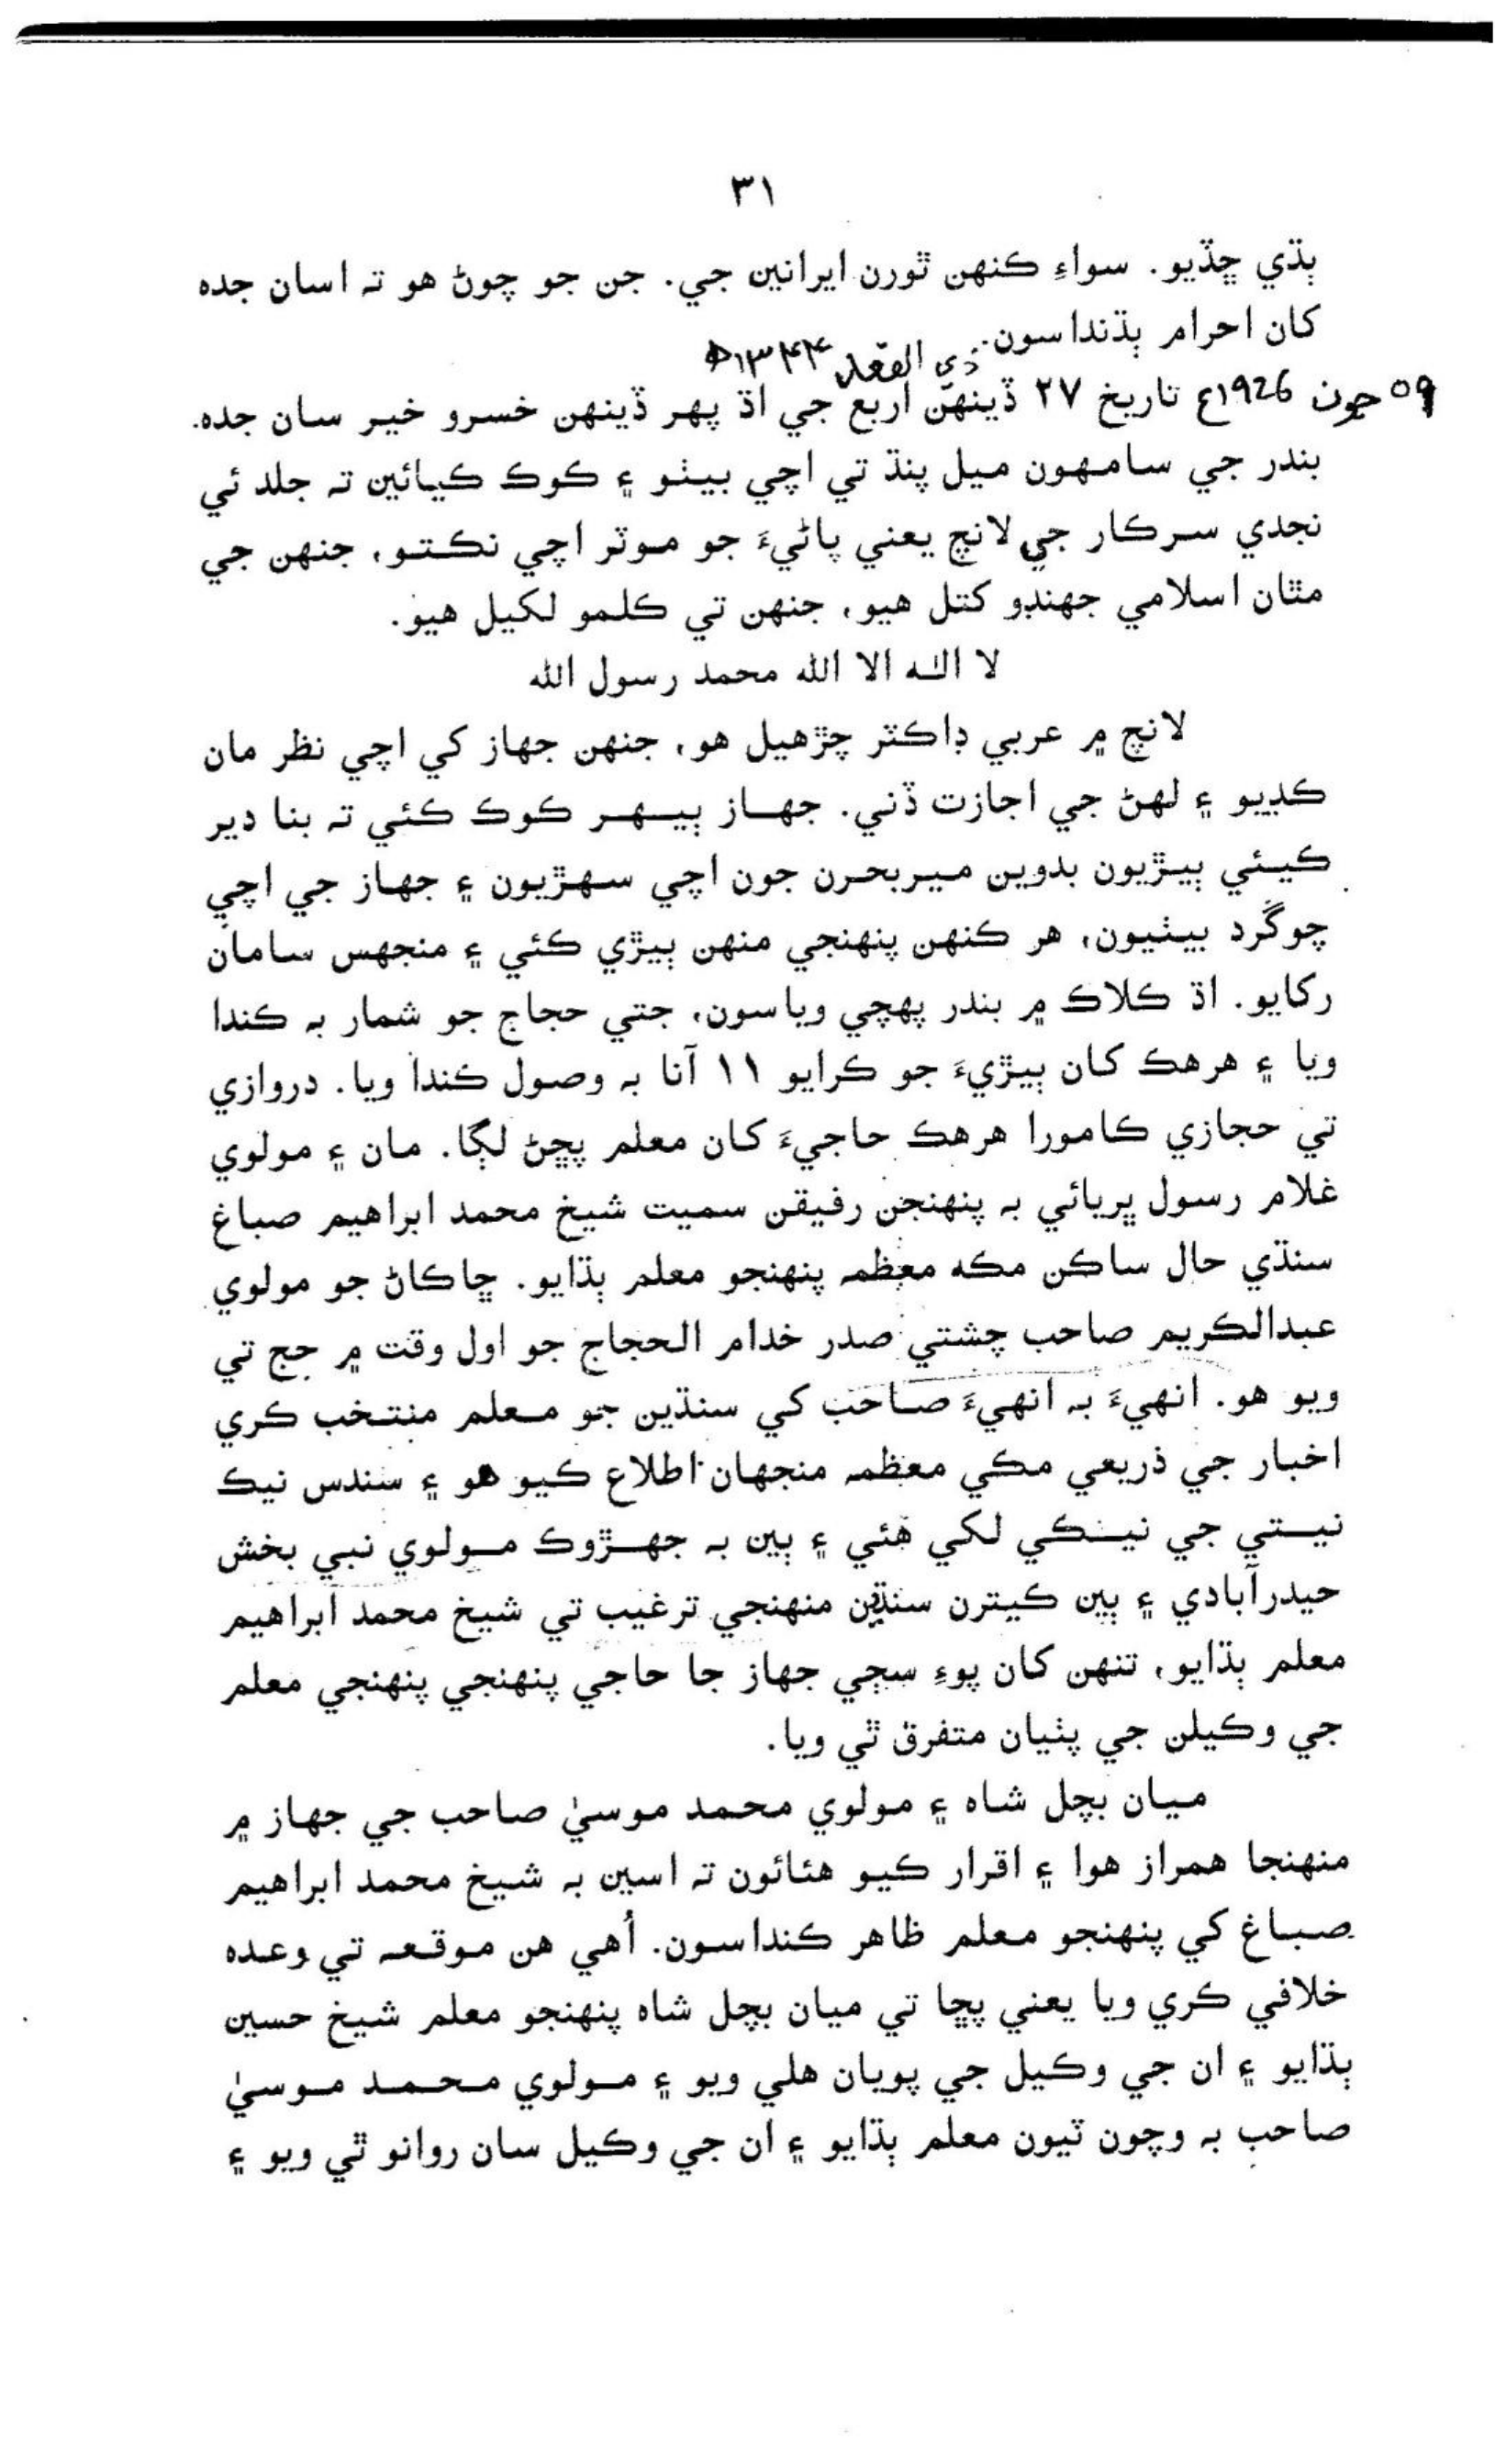 ٣١
ٻڌي ڇڏيو. سواءِ ڪنهن ٿورن ايرانين جي. جن جو چوڻ هو تہ اسان جده
کان احرام ٻڌنداسون.
ذي القعد ١٣۴۴ھ
09 جون 1926ع تاريخ ٢٧ ڏينهن اربع جي اڌ پهر ڏينهن خسرو خير سان جده.
بندر جي سامهون ميل پنڌ تي اچي بيٺو ۽ ڪوڪ ڪيائين تہ جلد ئي
نجدي سرڪار جي لانچ يعني پاڻيءَ جو موٽر اچي نڪتو، جنهن جي
مٿان اسلامي جهنڊو کتل هيو، جنهن تي ڪلمو لکيل هيو.
لا الہ الا الله محمد رسول الله
لانچ ۾ عربي ڊاڪٽر چڙهيل هو، جنهن جهاز کي اچي نظر مان
ڪڍيو ۽ لهڻ جي اجازت ڏني. جهاز ٻيهر ڪوڪ ڪئي تہ بنا دير
ڪيئي ٻيڙيون بدوين ميربحرن جون اچي سهڙيون ۽ جهاز جي اچي
چوگرد بيٺيون، هر ڪنهن پنهنجي منهن ٻيڙي ڪئي ۽ منجهس سامان
رکايو. اڌ ڪلاڪ ۾ بندر پهچي وياسون، جتي حجاج جو شمار بہ ڪندا
ويا ۽ هرهڪ کان ٻيڙيءَ جو ڪرايو ١١ آنا بہ وصول ڪندا ويا. دروازي
تي حجازي ڪامورا هرهڪ حاجيءَ کان معلم پڇڻ لڳا. مان ۽ مولوي
غلام رسول ڀريائي بہ پنهنجن رفيقن سميت شيخ محمد ابراهيم صباغ
سنڌي حال ساڪن مڪه معظمہ پنهنجو معلم ٻڌايو. ڇاڪاڻ جو مولوي
عبدالڪريم صاحب چشتي صدر خدام الحجاج جو اول وقت ۾ حج تي
ويو هو. انهيءَ بہ انهيءَ صاحب کي سنڌين جو معلم منتخب ڪري
اخبار جي ذريعي مڪي معظمہ منجهان اطلاع ڪيو هو ۽ سندس نيڪ
نيتي جي نيڪي لکي هئي ۽ ٻين بہ جهڙوڪ مولوي نبي بخش
حيدرآبادي ۽ ٻين ڪيترن سنڌين منهنجي ترغيب تي شيخ محمد ابراهيم
معلم ٻڌايو، تنهن کان پوءِ سڄي جهاز جا حاجي پنهنجي پنهنجي معلم
جي وڪيلن جي پٺيان متفرق ٿي ويا.
ميان بچل شاه ۽ مولوي محمد موسيٰ صاحب جي جهاز ۾
منهنجا همراز هوا ۽ اقرار ڪيو هئائون تہ اسين بہ شيخ محمد ابراهيم
صباغ کي پنهنجو معلم ظاهر ڪنداسون. اُهي هن موقعہ تي وعده
خلافي ڪري ويا يعني پڇا تي ميان بچل شاه پنهنجو معلم شيخ حسين
ٻڌايو ۽ ان جي وڪيل جي پويان هلي ويو ۽ مولوي محمد موسيٰ
صاحب بہ وچون ٽيون معلم ٻڌايو ۽ ان جي وڪيل سان روانو ٿي ويو ۽